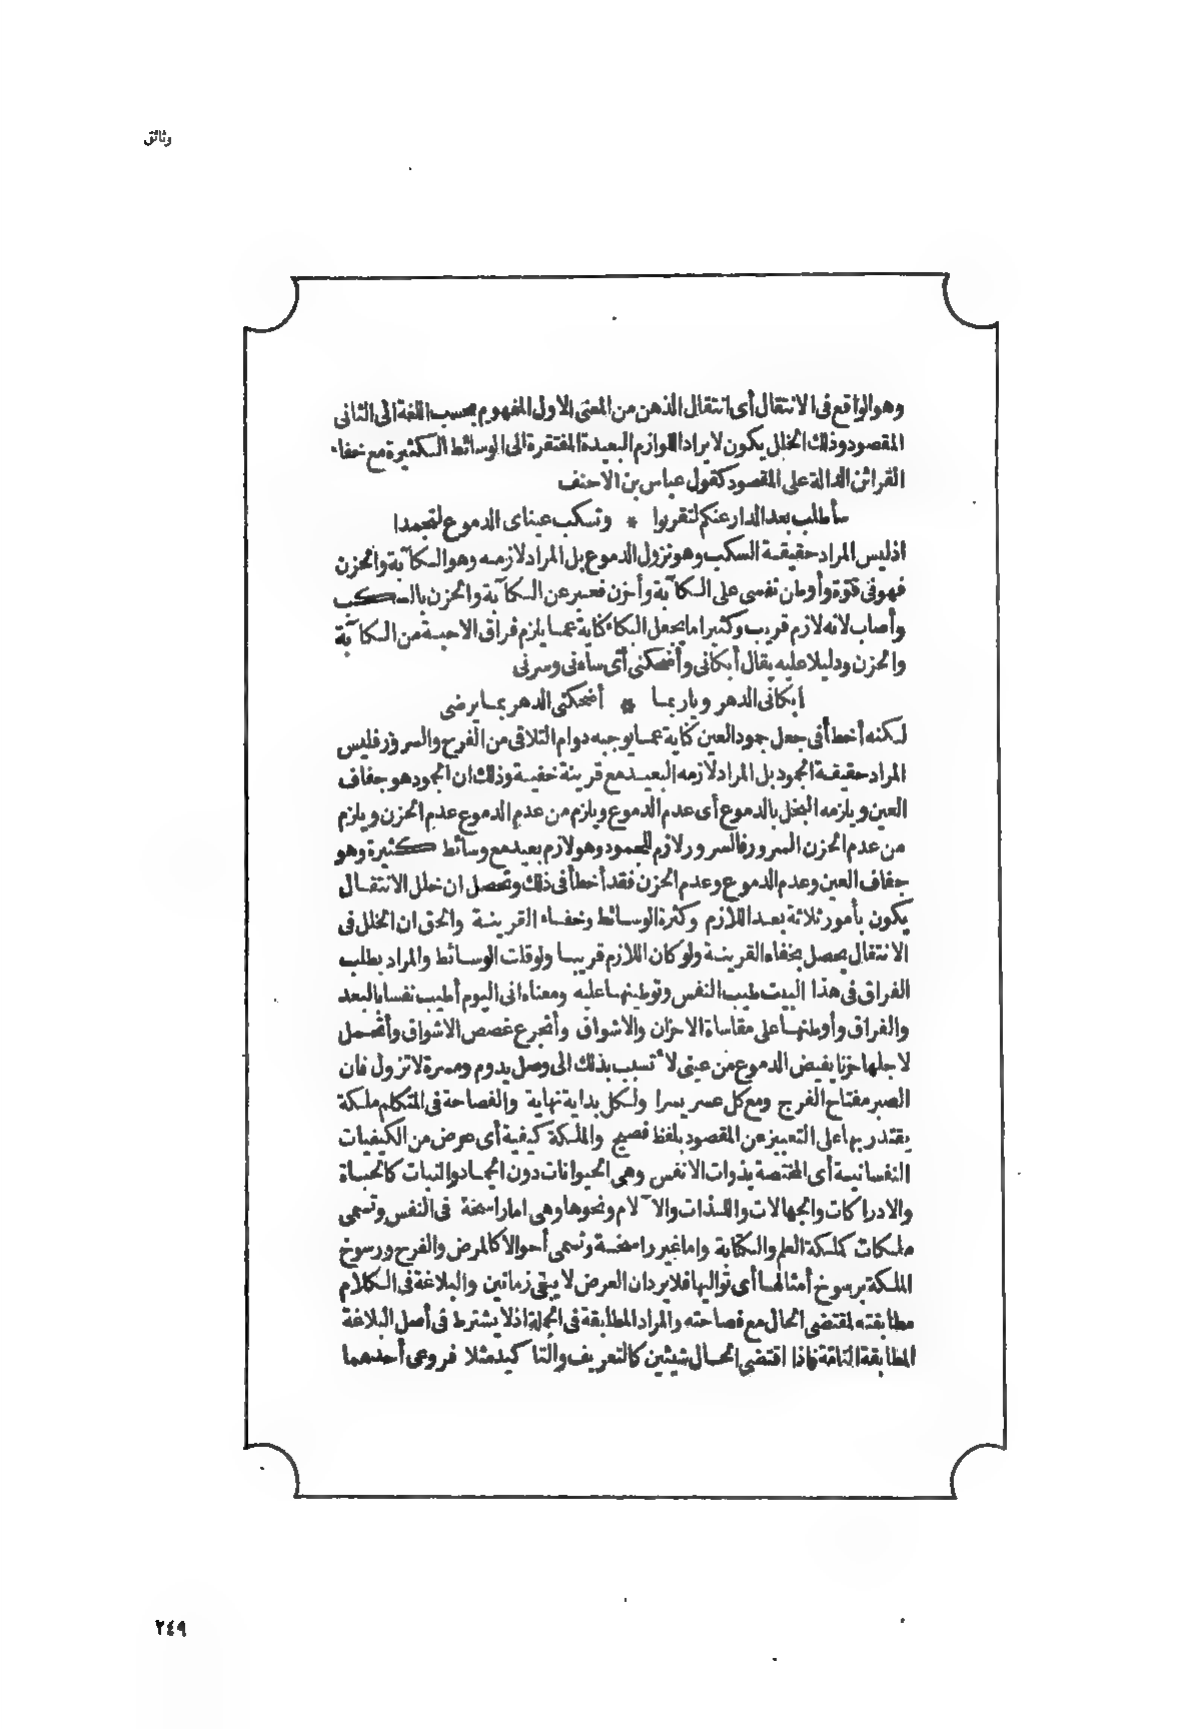 وثائق
وهو الواقع فى الانتقال أى انتقال الذهن من المعنى الاول المفهوم بحسب اللغة الى الثانى
المقصود وذلك الخلل يكون لايراد اللوازم البعيدة المفتقرة الى الوسائط الكثيرة مع خفاء
القرائن الدالة على المقصود كقول عباس بن الاحنف
سأطلب بعد الدار عنكم لتقربوا * وتسكب عيناى الدموع لتجمدا
اذ ليس المراد حقيقة السكب وهو نزول الدموع بل المراد لازمه وهو الكآبة والحزن
فهو فى قوة وأوطن نفسى على الكآبة وأحزن فعبر عن الكآبة والحزن بالسكب
وأصاب لانه لازم قريب وكثيرا ما يجعل البكاء كناية عما يلزم فراق الاحبة من الكآبة
والحزن ودليلا عليه يقال أبكانى وأضحكنى أى ساءنى وسرنى
أبكانى الدهر ويا ربما * أضحكنى الدهر بما يرضى
لكنه أخطأ فى جعل جمود العين كناية عما يوجبه دوام التلاقى من الفرح والسرور فليس
المراد حقيقة الجمود بل المراد لازمه البعيد مع قرينة خفية وذلك ان الجمود هو جفاف
العين ويلزمه البخل بالدموع أى عدم الدموع ويلزم من عدم الدموع عدم الحزن ويلزم
من عدم الحزن السرور فالسرور لازم للجمود وهو لازم بعيد مع وسائط كثيرة وهو
جفاف العين وعدم الدموع وعدم الحزن فقد أخطأ فى ذلك وتحصل ان خلل الانتقال
يكون بأمور ثلاثة بعد اللازم وكثرة الوسائط وخفاء القرينة والحق ان الخلل فى
الانتقال يحصل بخفاء القرينة ولو كان اللازم قريبا ولو قلت الوسائط والمراد بطلب
الفراق فى هذا البيت طيب النفس وتوطينها عليه ومعناه انى اليوم أطيب نفسا بالبعد
والفراق وأوطنها على مقاساة الاحزان والاشواق وأتجرع غصص الاشواق وأتحمل
لاجلها حزنا يفيض الدموع من عينى لاتسبب بذلك الى وصل يدوم ومسرة لا تزول فان
الصبر مفتاح الفرج ومع كل عسر يسرا ولكل بداية نهاية والفصاحة فى المتكلم ملكة
يقتدر بها على التعبير عن المقصود بلفظ فصيح والملكة كيفية أى عرض من الكيفيات
النفسانية أى المختصة بذوات الانفس وهى الحيوانات دون الجماد والنبات كالحياة
والادراكات والجهالات واللذات والآلام ونحوها وهى اما راسخة فى النفس وتسمى
ملكات كملكة العلم والكتابة واما غير راسخة وتسمى أحوالا كالمرض والفرح ورسوخ
الملكة برسوخ أمثالها أى تواليها فلا يرد ان العرض لا يبقى زمانين والبلاغة فى الكلام
مطابقته لمقتضى الحال مع فصاحته والمراد المطابقة فى الجملة اذ لا يشترط فى أصل البلاغة
المطابقة التامة فاذا اقتضى الحال شيئين كالتعريف والتاكيد مثلا فروعى أحدهما
٢٤٩